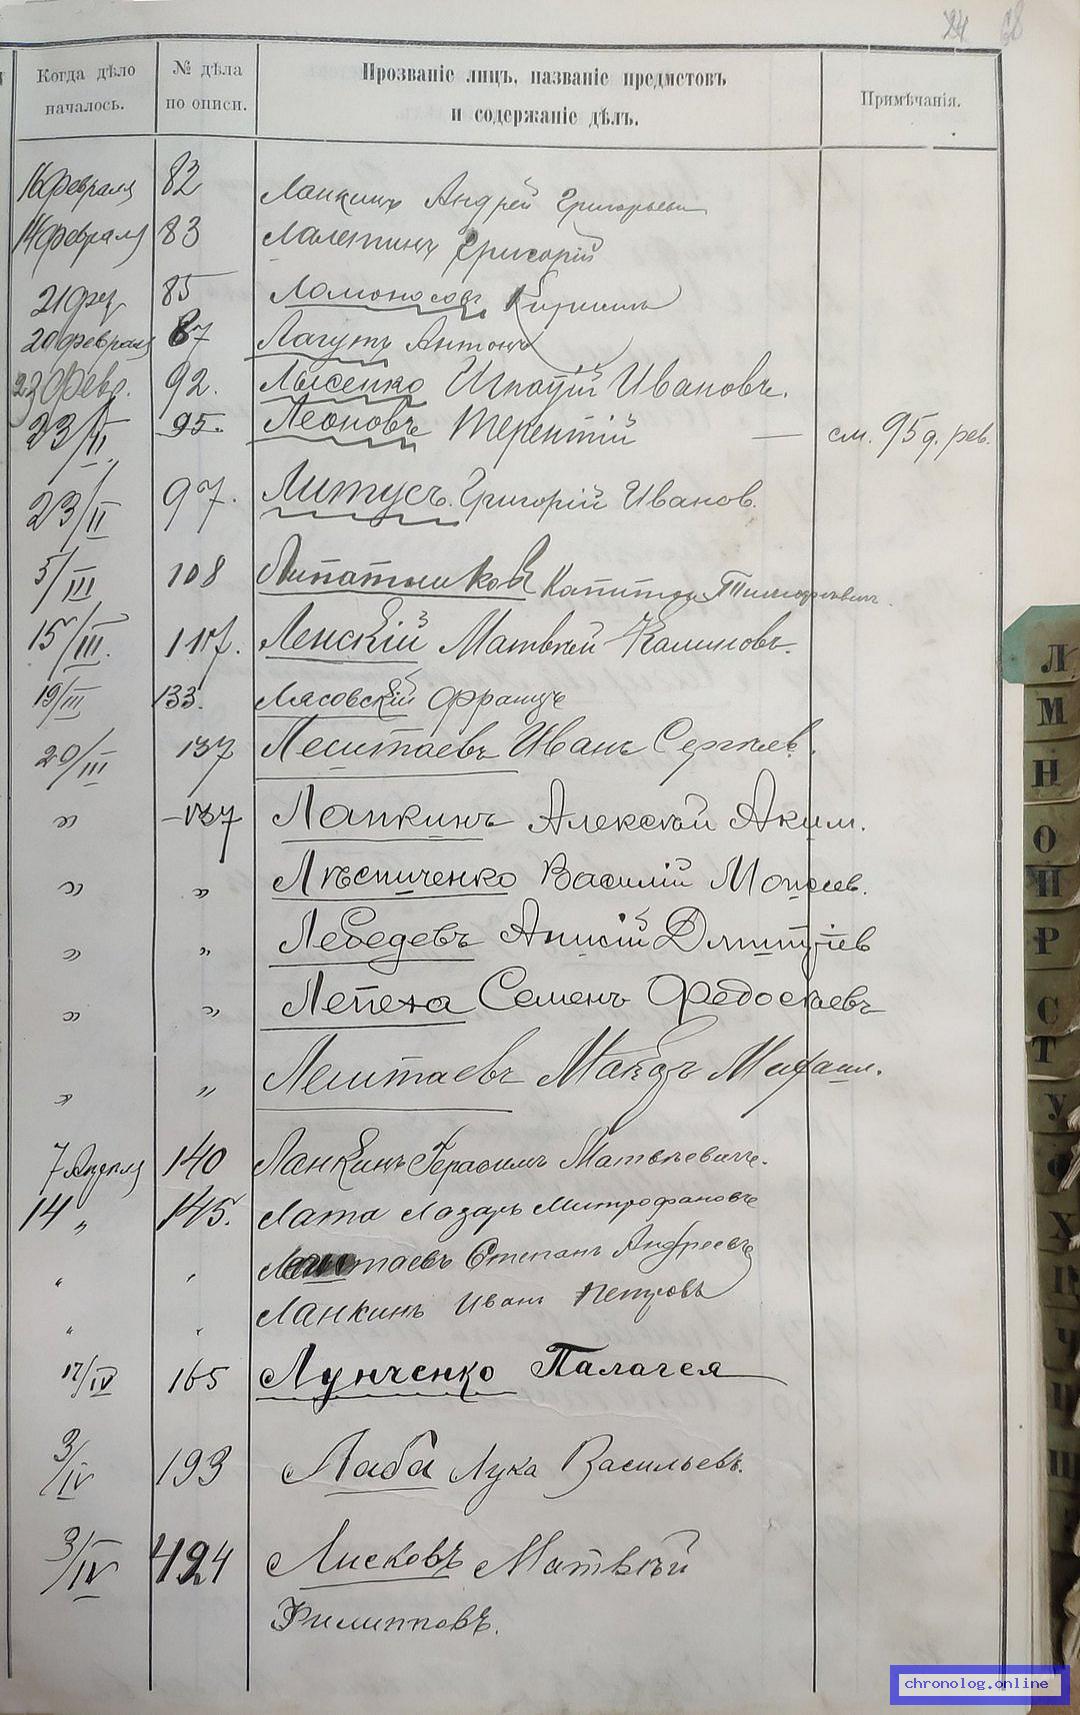 68
Когда дѣло началось.
№ дѣла по описи.
Прозваніе лицъ, названіе предметовъ и содержаніе дѣлъ.
Примѣчанія.
16 февраля 82 Лапкинъ Андрей Григорьеви
14 февраля 83 Лалетинъ Григорій
21 фев 85 Ломоносовъ Кирилъ
20 февраля 87 Лагутъ Антонъ
23 февр. 92. Лысенко Игнатій Ивановъ.
23/II. 95. Леоновъ Терентій — см. 95 д. рев.
23/II 97. Литусъ. Григорій Иванов.
5/III 108 Липатниковъ Капитон Тимофеевич.
15/III. 117. Ленскій Матвѣй
19/III 133. Лясовскій Францъ
20/III 137 Лештаевъ Иванъ Сергѣев.
„ 137 Лапкинъ Алексѣй Аким.
„ „ Лѣсниченко Василій Моисеев.
„ „ Лебедевъ Анисій Дмитріев
„ „ Лепеха Семенъ Федосѣевъ
„ „ Лештаевъ Михаил.
7 Апрѣля 140 Ланкинъ Герасимъ Матвѣевичъ.
14 „ 145. Лата Лазарь Митрофановъ
„ „ Степанъ Андреевъ
„ „ Ланкинъ Иванъ Петровъ
17/IV 165 Лунченко Палагея
3/IV 193 Лаба Лука Васильевъ.
3/IV 424 Лисковъ Матвѣй
Филипповъ.
Л
М
Н
О
П
Р
С
Т
У
Х
Ч
chronolog.online